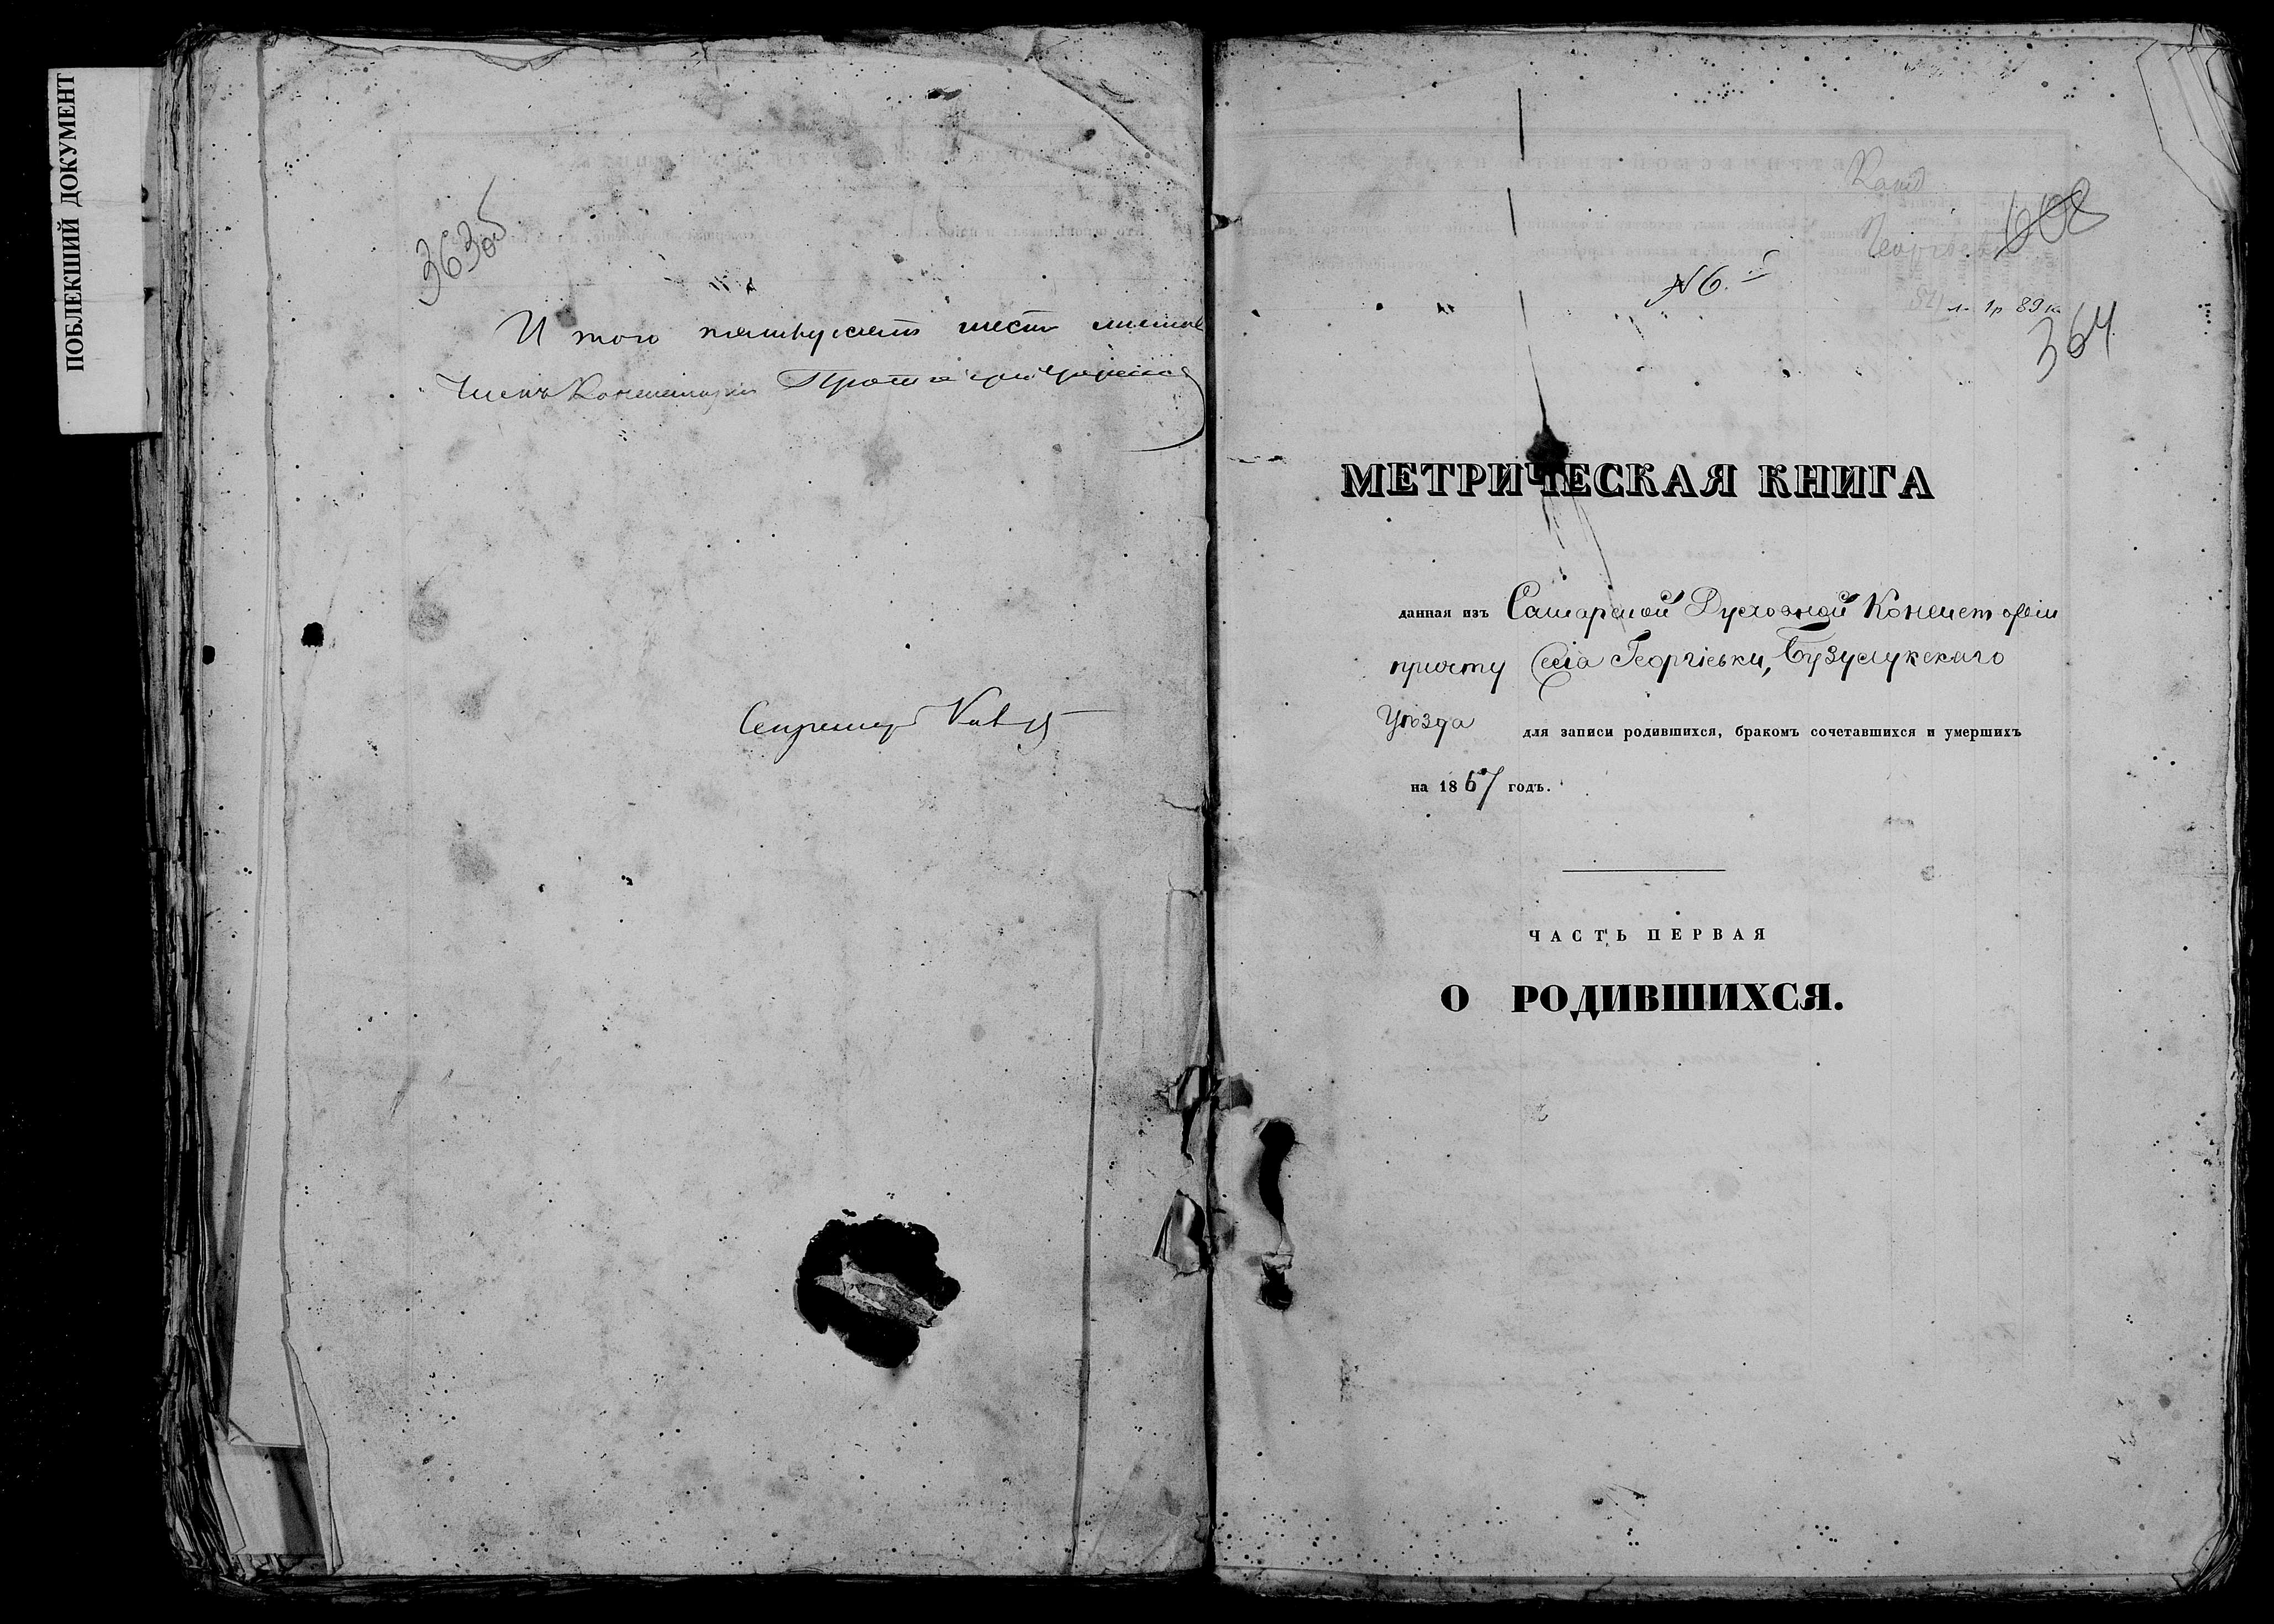 ПОБЛЕКШИЙ ДОКУМЕНТ
363об
И того пятнадцать шесть листовъ
Членъ Консисторіи Протоіерей
Секретарь
N 6.
608
л. 1р 89к
364
МЕТРИЧЕСКАЯ КНИГА
данная изъ Самарской Духовной Консисторіи
причту Села Георгіевки, Бузулукскаго
Уѣзда для записи родившихся, бракомъ сочетавшихся и умершихъ
на 1867 годъ.
ЧАСТЬ ПЕРВАЯ
О РОДИВШИХСЯ.